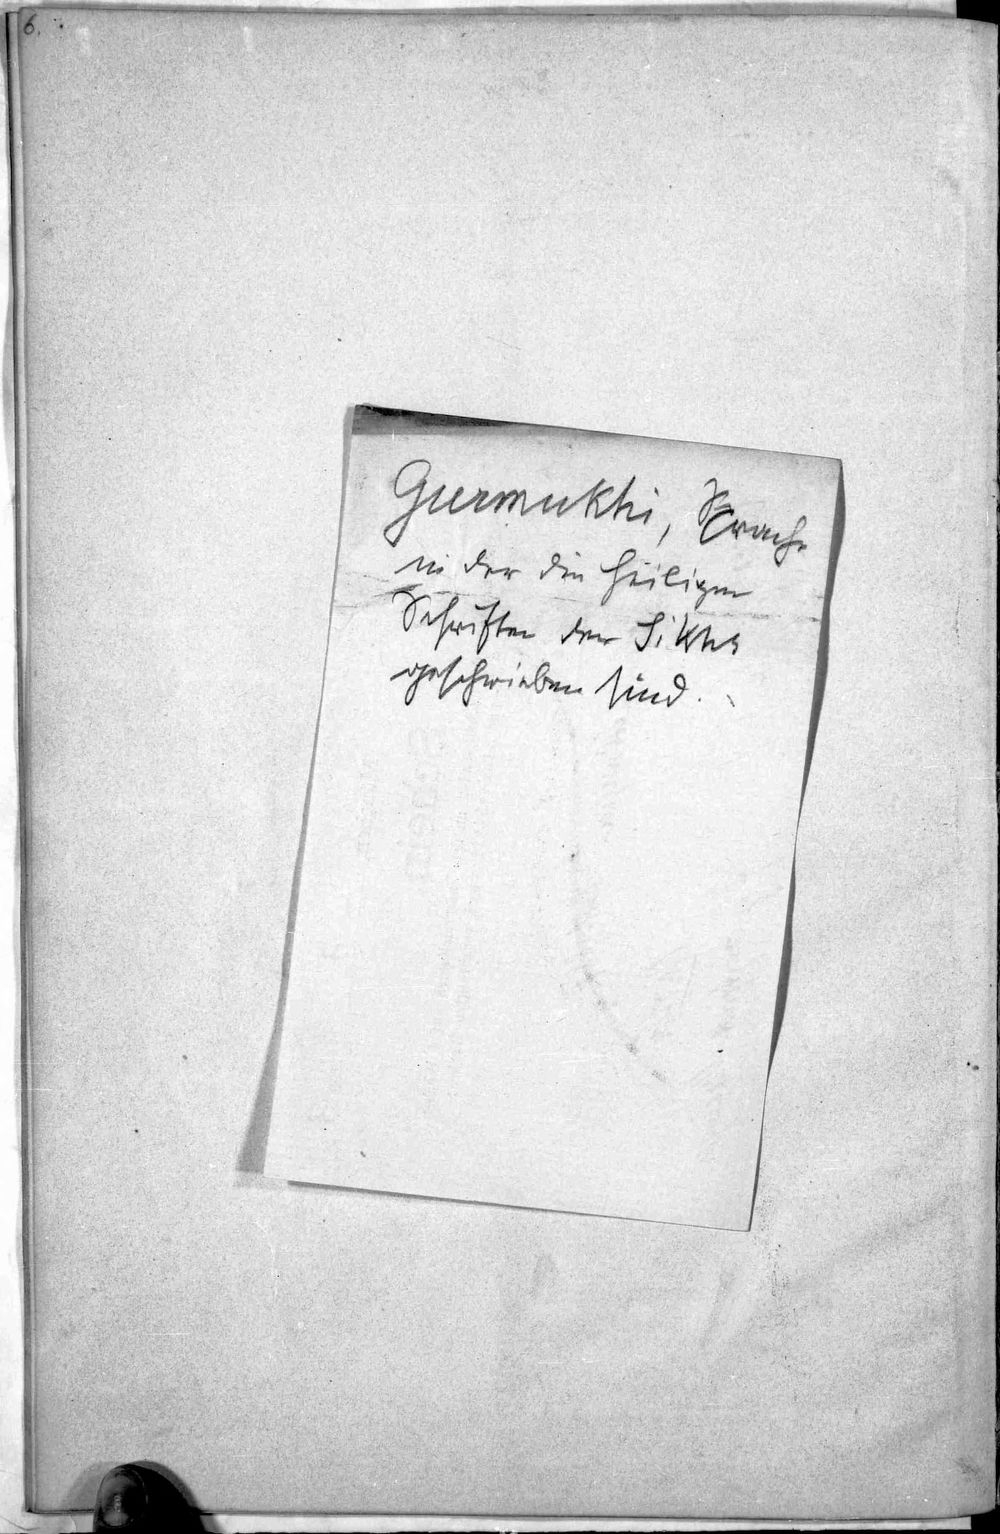 6.
Gurmukhi, Sprache
in der die heiligen
Schriften der Sikhs
geschrieben sind.